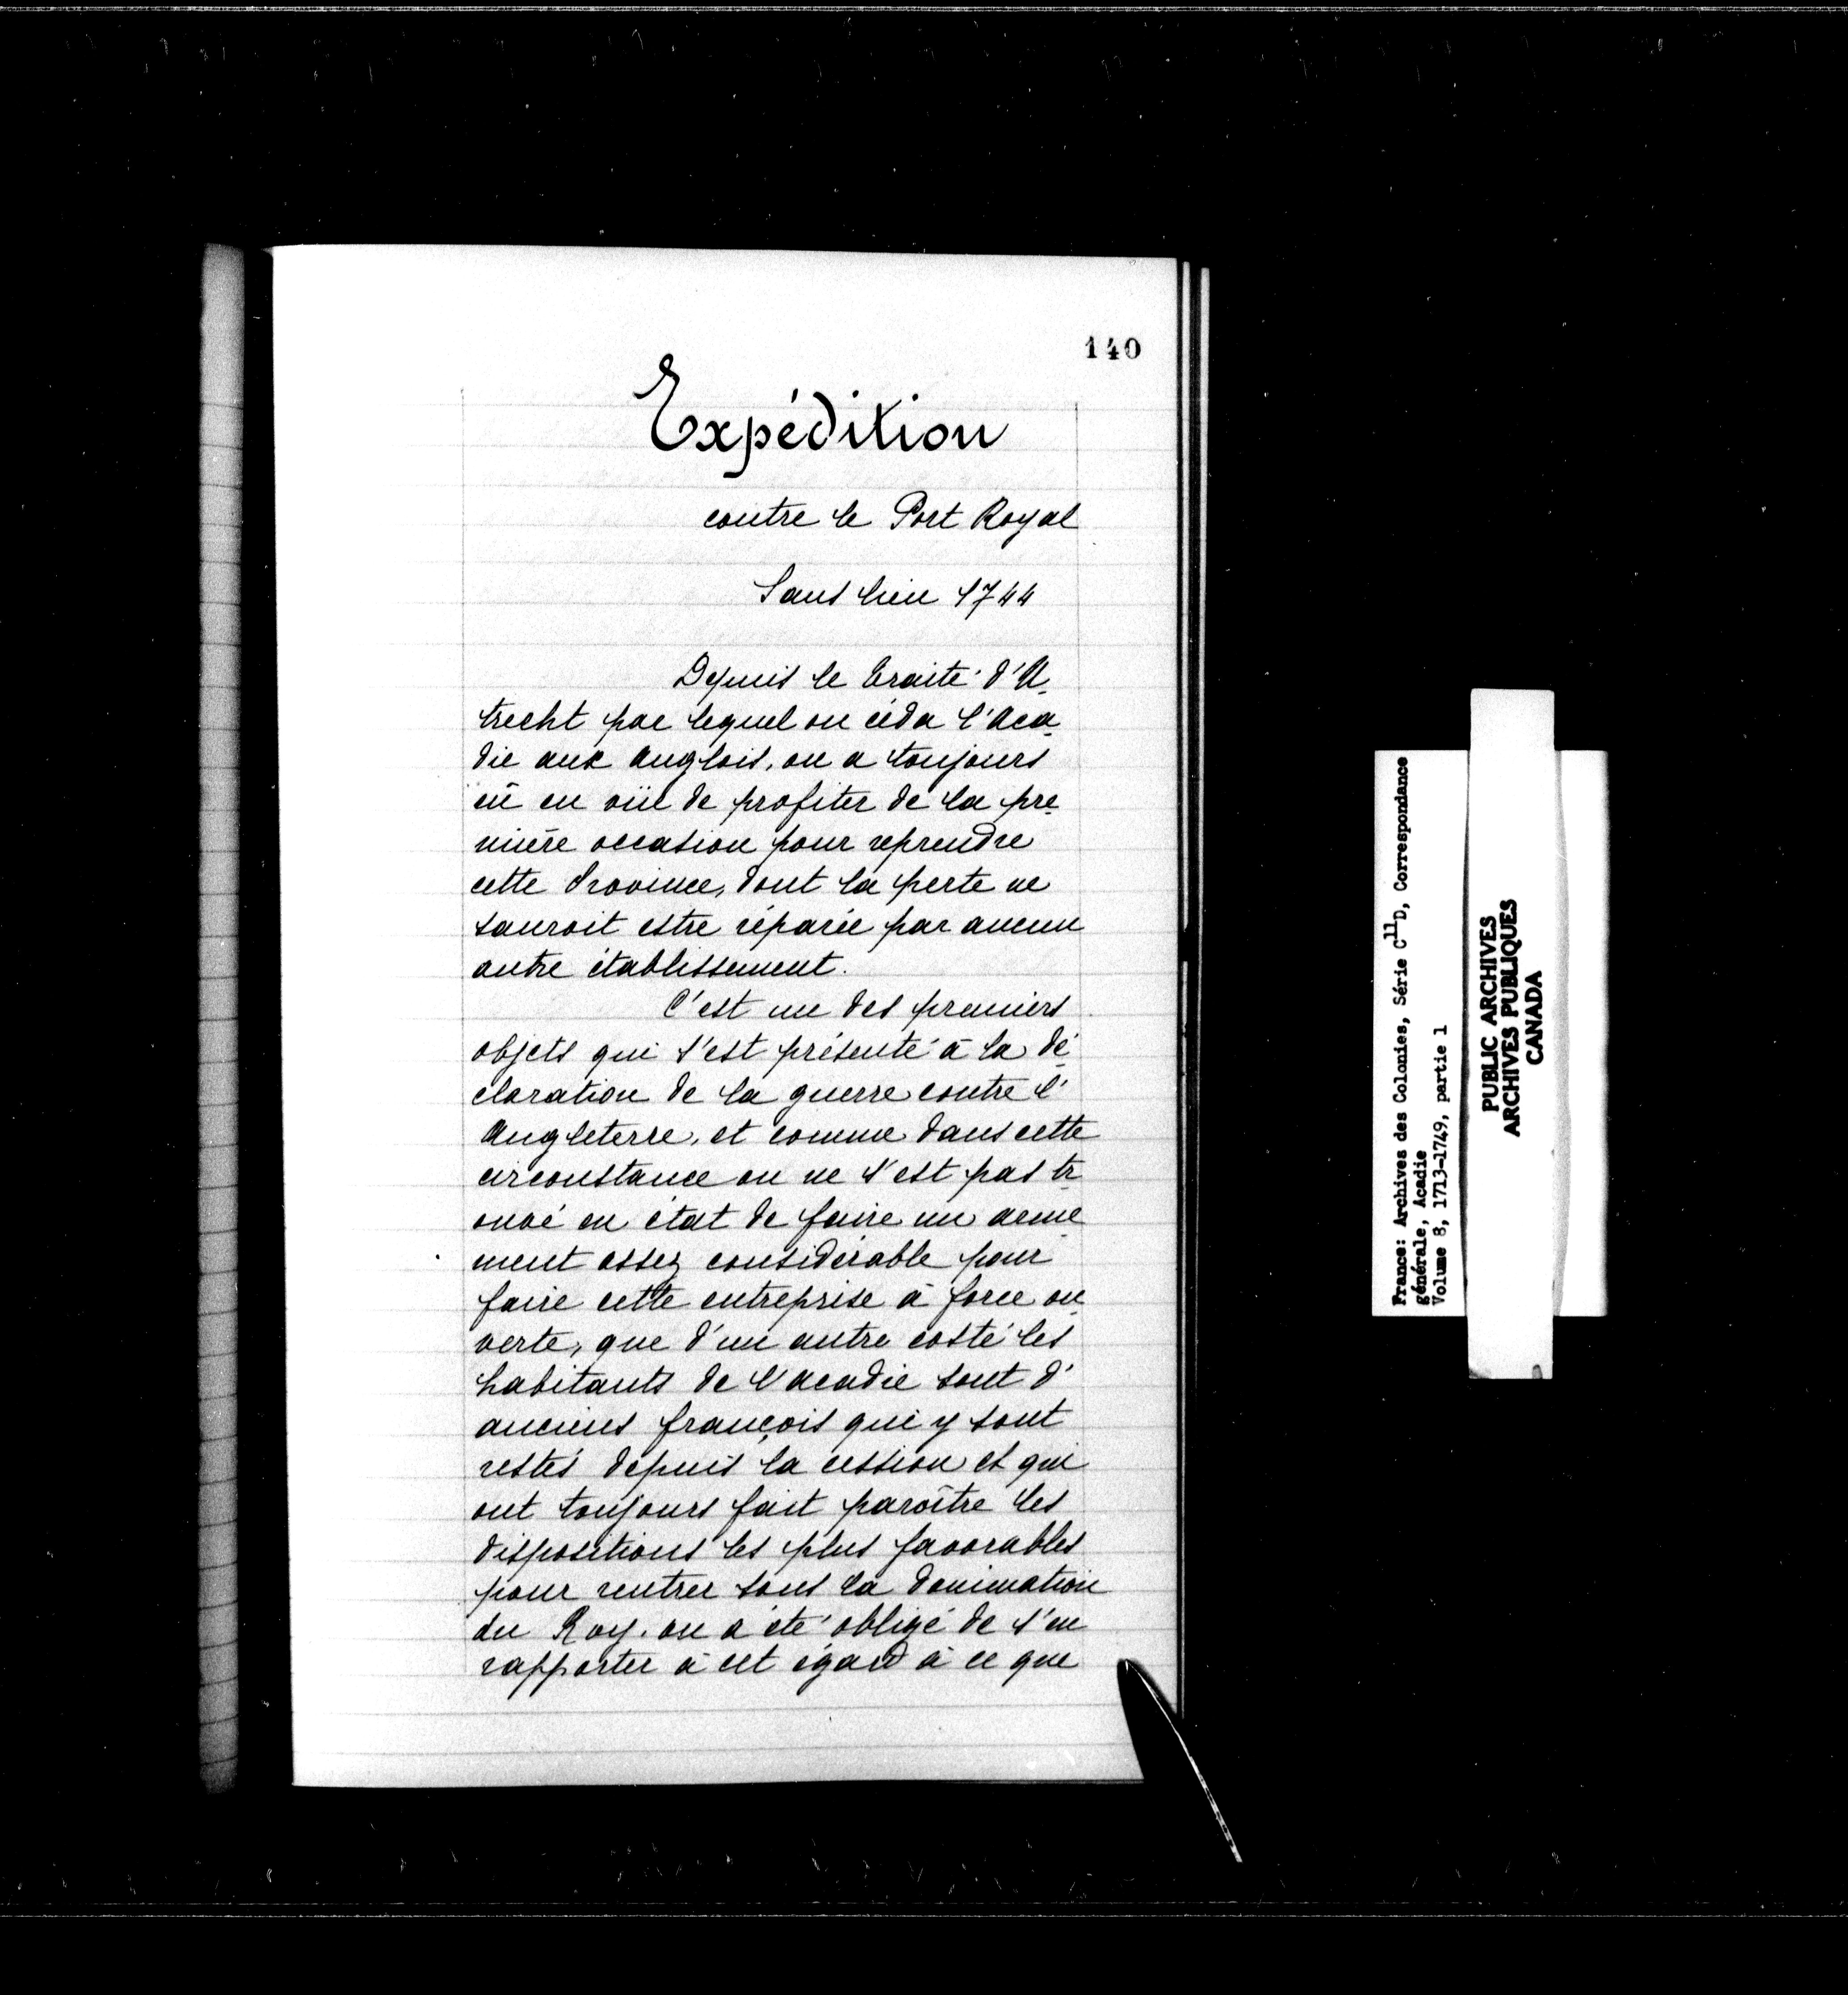 140
Expédition
contre le Port Royal
Sans lieu 1744
Depuis le traité d'U-
trecht par lequel on céda l'Aca-
die aux Anglois, on a toujours
eû en vüe de profiter de la pre-
mière occasion pour reprendre
cette Province, dont la perte ne
sauroit estre réparée par aucun
autre établissement.
C'est un des premiers
objets qui s'est présenté à la dé-
claration de la guerre contre l'
Angleterre, et comme dans cette
circonstance on ne s'est pas tr-
ouvé en état de faire un arme-
ment assez considérable pour
faire cette entreprise à force ou-
verte, que d'un autre costé les
habitants de l'Acadie sont d'
anciens françois qui y sont
restés depuis la cession et qui
ont toujours fait paroître les
dispositions les plus favorables
pour rentrer sous la domination
du Roy, on a été obligé de s'en
rapporter à cet égard à ce que
France: Archives des Colonies, Série C11D, Correspondance
générale, Acadie
Volume 8, 1713-1749, partie 1
PUBLIC ARCHIVES
ARCHIVES PUBLIQUES
CANADA